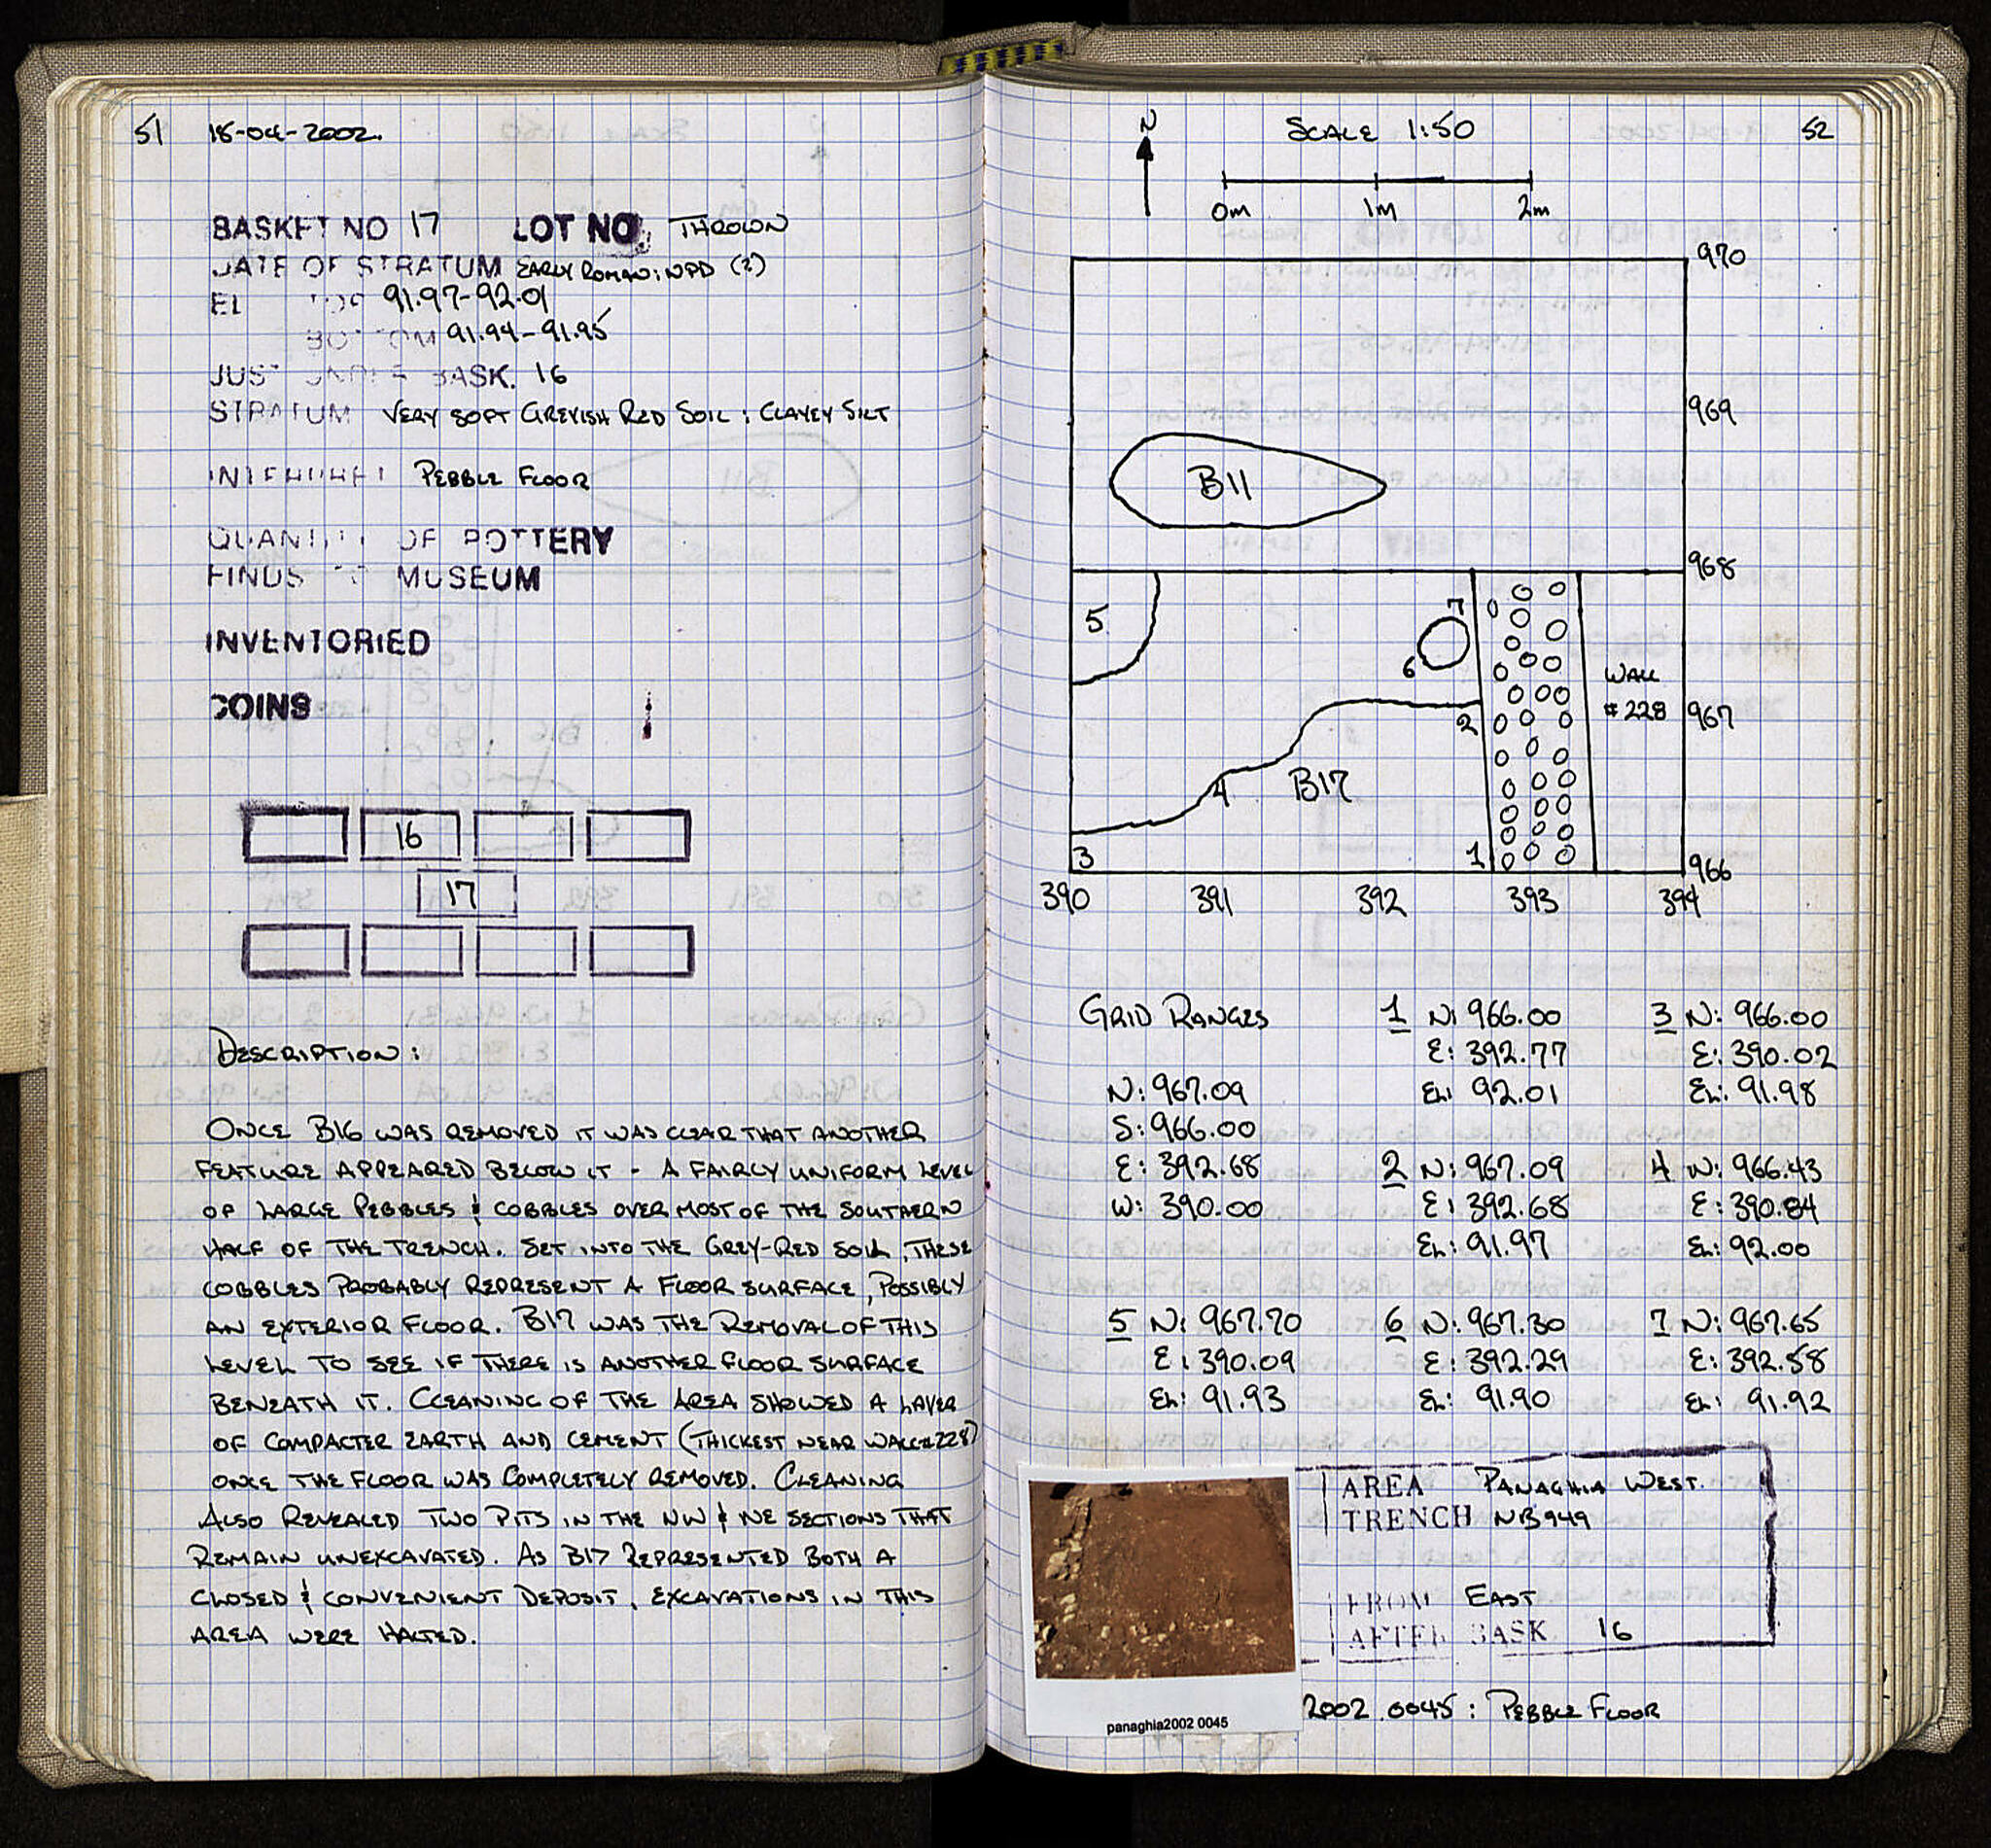 51 18-04-2002.
BASKET NO 17 LOT NO. THROWN
DATE OF STRATUM EARLY ROMAN; NPD (2)
EL TOP 91.97-92.01
BOTTOM 91.94-91.95
JUST UNDER BASK. 16
STRATUM VERY SOFT GREYISH RED SOIL; CLAYEY SILT
INTERPRET PEBBLE FLOOR
QUANTITY OF POTTERY
FINDS TO MUSEUM
INVENTORIED
COINS
16
17
DESCRIPTION:
ONCE B16 WAS REMOVED IT WAS CLEAR THAT ANOTHER
FEATURE APPEARED BELOW IT - A FAIRLY UNIFORM LEVEL
OF LARGE PEBBLES & COBBLES OVER MOST OF THE SOUTHERN
HALF OF THE TRENCH. SET INTO THE GREY-RED SOIL, THESE
COBBLES PROBABLY REPRESENT A FLOOR SURFACE, POSSIBLY
AN EXTERIOR FLOOR. B17 WAS THE REMOVAL OF THIS
LEVEL TO SEE IF THERE IS ANOTHER FLOOR SURFACE
BENEATH IT. CLEANING OF THE AREA SHOWED A LAYER
OF COMPACTER EARTH AND CEMENT (THICKEST NEAR WALL#228)
ONCE THE FLOOR WAS COMPLETELY REMOVED. CLEANING
ALSO REVEALED TWO PITS IN THE NW & NE SECTIONS THAT
REMAIN UNEXCAVATED. AS B17 REPRESENTED BOTH A
CLOSED & CONVENIENT DEPOSIT, EXCAVATIONS IN THIS
AREA WERE HALTED.
N SCALE 1:50 52
0m 1m 2m
970
969
B11
968
5 7
6
WALL
#228 967
2
4 B17
3 1 966
390 391 392 393 394
GRID RANGES
N: 967.09
S: 966.00
E: 392.68
W: 390.00
1 N: 966.00
E: 392.77
EL: 92.01
3 N: 966.00
E: 390.02
EL: 91.98
2 N: 967.09
E: 392.68
EL: 91.97
4 N: 966.43
E: 390.84
EL: 92.00
5 N: 967.70
E: 390.09
EL: 91.93
6 N: 967.30
E: 392.29
EL: 91.90
7 N: 967.65
E: 392.58
EL: 91.92
AREA PANAGHIA WEST.
TRENCH NB949
FROM EAST
AFTER BASK 16
panaghia2002 0045
2002.0045: PEBBLE FLOOR